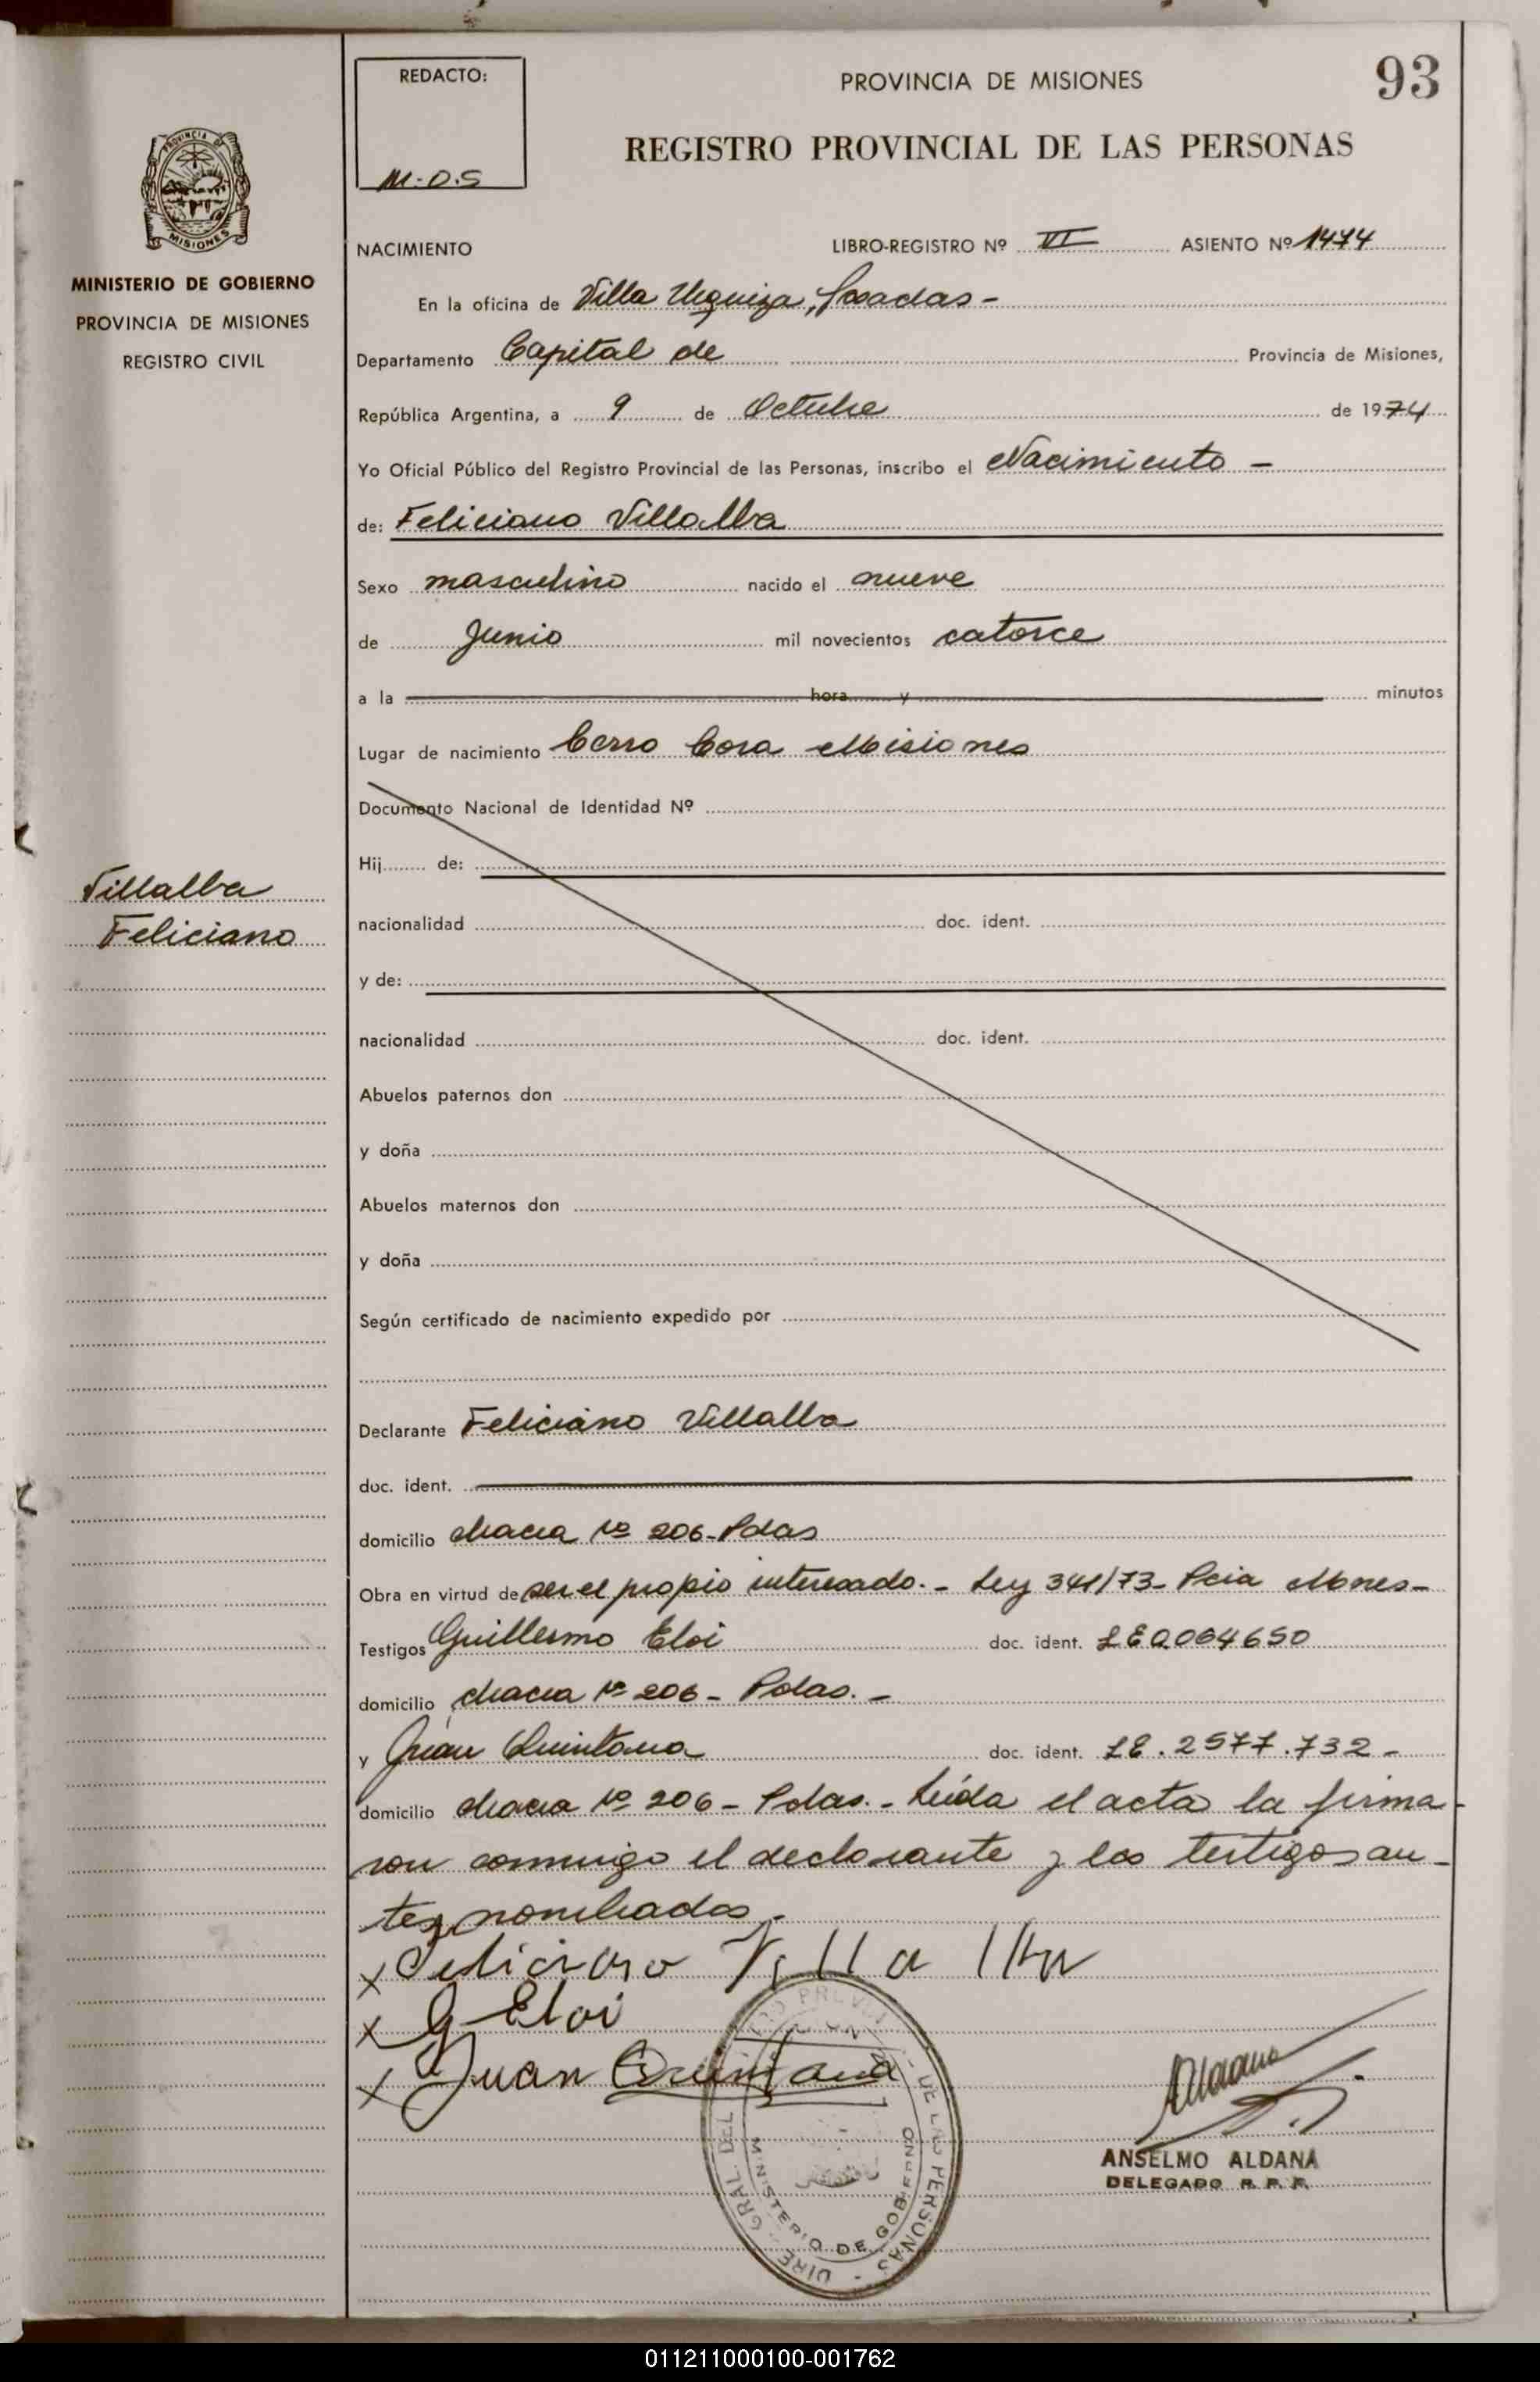 REDACTO:
M.O.S
PROVINCIA DE MISIONES
93
REGISTRO PROVINCIAL DE LAS PERSONAS
PROVINCIA
MISIONES
MINISTERIO DE GOBIERNO
PROVINCIA DE MISIONES
REGISTRO CIVIL
Villalba
Feliciano
NACIMIENTO LIBRO-REGISTRO Nº VI ASIENTO Nº 1474
En la oficina de Villa Urquiza, Posadas -
Departamento Capital de Provincia de Misiones,
República Argentina, a 9 de Octubre de 1974
Yo Oficial Público del Registro Provincial de las Personas, inscribo el Nacimiento -
de: Feliciano Villalba
Sexo masculino nacido el nueve
de Junio mil novecientos catorce
a la hora y minutos
Lugar de nacimiento Cerro Cora Misiones
Documento Nacional de Identidad Nº
Hij de:
nacionalidad doc. ident.
y de:
nacionalidad doc. ident.
Abuelos paternos don
y doña
Abuelos maternos don
y doña
Según certificado de nacimiento expedido por
Declarante Feliciano Villalba
doc. ident.
domicilio chacra Nº 206 - Pdas
Obra en virtud de ser el propio interesado. - Ley 341/73 - Pcia Mnes -
Testigos Guillermo Eloi doc. ident. LE 0064650
domicilio chacra Nº 206 - Pdas. -
y Juan Quintana doc. ident. LE. 2577.732 -
domicilio chacra Nº 206 - Pdas. - Leída el acta la firma-
ron conmigo el declarante y los testigos an-
tes nombrados.-
x Feliciano Villalba
x G Eloi
x Juan Quintana
Aldana
ANSELMO ALDANA
DELEGADO R. P. P.
GRAL. DEL DE LAS PERSONAS
MINISTERIO DE GOBIERNO
011211000100-001762